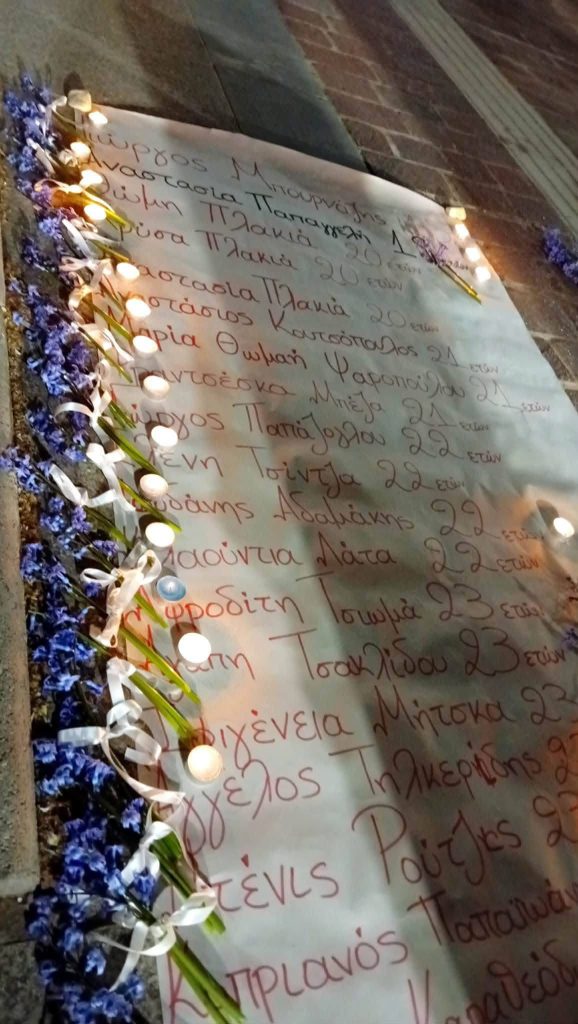 Γιώργος Μπουρνάζης
Αναστασία Παπαγγελή 1
Θώμη Πλακιά 20 ετών
Χρύσα Πλακιά 20 ετών
Αναστασία Πλακιά 20 ετών
Αναστάσιος Κουτσόπουλος 21 ετών
Μαρία Θωμαή Ψαροπούλου 21 ετών
Φραντσέσκα Μπέζα 21 ετών
Γιώργος Παπάζογλου 22 ετών
Ελένη Τσίντζα 22 ετών
Ιορδάνης Αδαμάκης 22 ετών
Κλαούντια Λάτα 22 ετών
Αφροδίτη Τσιωμά 23 ετών
Αγάπη Τσακλίδου 23 ετών
Ιφιγένεια Μήτσκα 23
Άγγελος Τηλκερίδης 23
Ντένις Ρούτζις 2
Κυπριανός Παπαϊωάν
Καραθεόδ